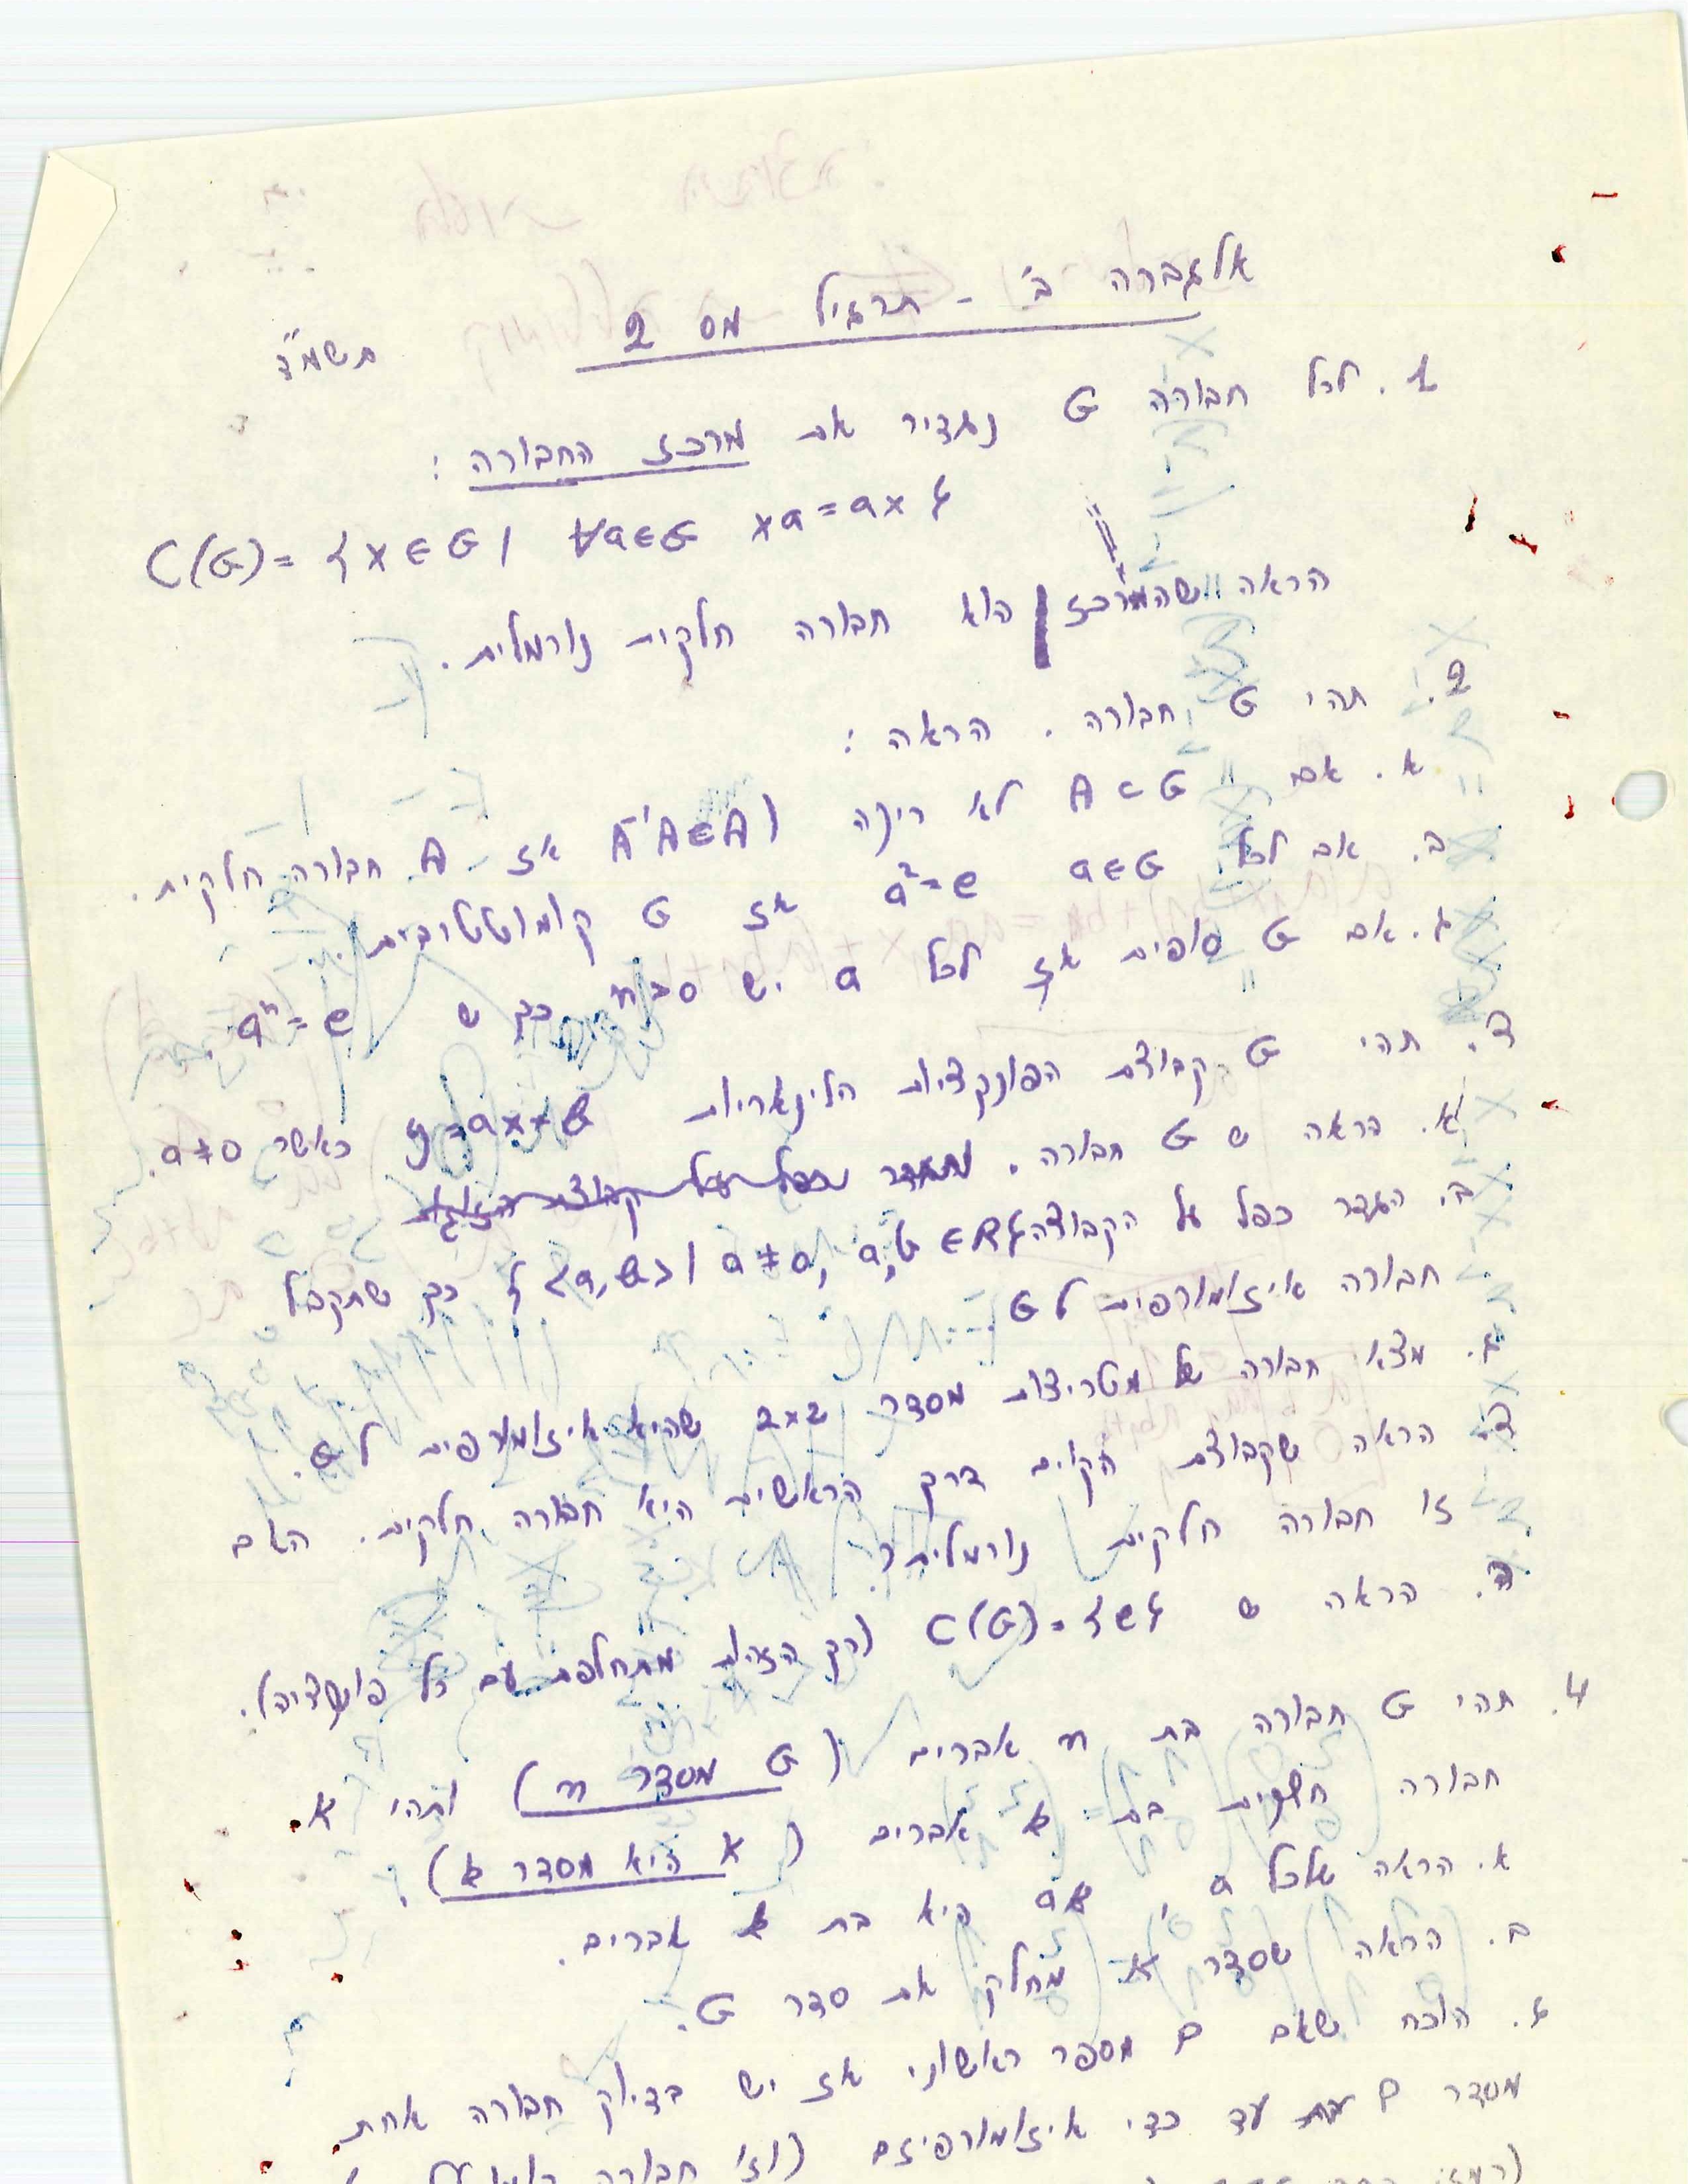 אלגברה ב' - תרגיל מס 2 תשמ"ד
1. לכל חבורה G נגדיר את מרכז החבורה :
C(G) = {x∈G | ∀a∈G xa=ax}
הראה שהמרכז הוא חבורה חלקית נורמלית.
2. תהי G חבורה . הראה :
א. אם A⊂G לא ריקה ו A⁻¹A∈A אז A חבורה חלקית.
ב. אם לכל a∈G a²=e אז G קומוטטיבית.
ג. אם G סופית אז לכל a יש n>0 כך ש aⁿ=e.
ד. תהי G קבוצת הפונקציות הלינאריות y=ax+b כאשר a≠0.
א. הראה ש G חבורה.
ב. הגדר כפל על הקבוצה {<a,b> | a≠0, a,b∈R} כך שתקבל
חבורה איזומורפית ל G
ג. מצא חבורה של מטריצות מסדר 2x2 שהיא איזומורפית ל G.
ד. הראה שקבוצת הקוים דרך הראשית היא חבורה חלקית. האם
זו חבורה חלקית נורמלית?
ה. הראה ש C(G)={e} (רק הזהות מתחלפת עם כל פונקציה).
4. תהי G חבורה בת n אברים (G מסדר n) ותהי K
חבורה חלקית בת k אברים (K היא מסדר k).
א. הראה שלכל a, aK היא בת k אברים.
ב. הראה שסדר K מחלק את סדר G.
ג. הוכח שאם p מספר ראשוני אז יש בדיוק חבורה אחת
מסדר p עד כדי איזומורפיזם (וזו חבורה